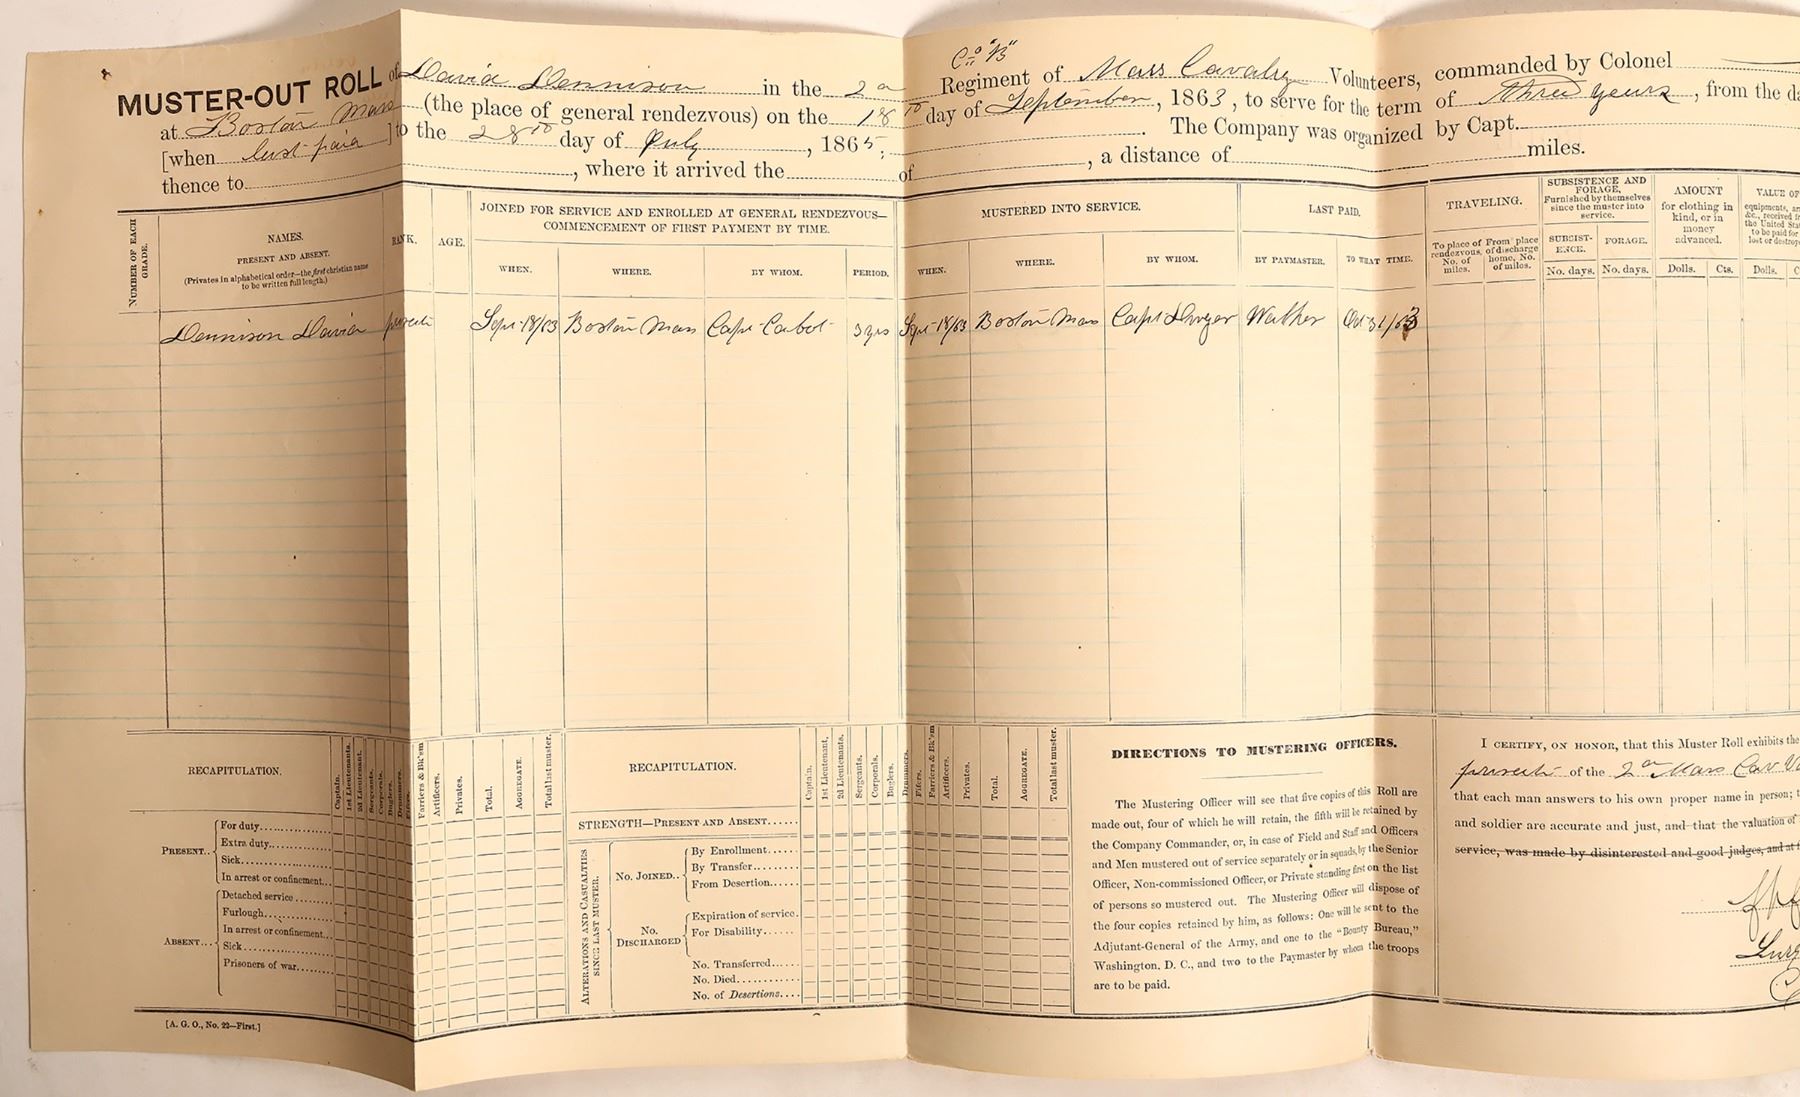 Co "B"
MUSTER-OUT ROLL of David Dennison in the 2d Regiment of Mass Cavalry Volunteers, commanded by Colonel
at Boston Mass (the place of general rendezvous) on the 18th day of September, 1863, to serve for the term of three years, from the da
[when last paid] to the 28th day of July, 1865; The Company was organized by Capt.
thence to , where it arrived the of , a distance of miles.
NUMBER OF EACH GRADE.
NAMES.
PRESENT AND ABSENT.
(Privates in alphabetical order—the first christian name to be written full length.)
RANK.
AGE.
JOINED FOR SERVICE AND ENROLLED AT GENERAL RENDEZVOUS—
COMMENCEMENT OF FIRST PAYMENT BY TIME.
WHEN. WHERE. BY WHOM. PERIOD.
MUSTERED INTO SERVICE.
WHEN. WHERE. BY WHOM.
LAST PAID.
BY PAYMASTER. TO WHAT TIME.
TRAVELING.
To place of rendezvous, No. of miles.
From place of discharge home, No. of miles.
SUBSISTENCE AND FORAGE,
Furnished by themselves since the muster into service.
SUBSISTENCE. FORAGE.
No. days. No. days.
AMOUNT
for clothing in kind, or in money advanced.
Dolls. Cts.
VALUE OF
equipments, ar
&c., received fr
the United Stat
to be paid for
lost or destroy
Dolls. C
Dennison David private Sept-18/63 Boston Mass Capt Cabot 3 yrs Sept-18/63 Boston Mass Capt Walker Oct 31/63
RECAPITULATION.
Captain.
1st Lieutenants.
2d Lieutenant.
Sergeants.
Corporals.
Buglers.
Drummers.
Fifers.
Farriers & Bk'sm
Artificers.
Privates.
Total.
AGGREGATE.
Total last muster.
PRESENT..
For duty
Extra duty
Sick
In arrest or confinement
ABSENT...
Detached service
Furlough
In arrest or confinement
Sick
Prisoners of war
[A. G. O., No. 22—First.]
RECAPITULATION.
Captain.
1st Lieutenant,
2d Lieutenants.
Sergeants.
Corporals.
Buglers.
Drummers.
Fifers.
Farriers & Bk'sm
Artificers.
Privates.
Total.
AGGREGATE.
Total last muster.
STRENGTH—PRESENT AND ABSENT
ALTERATIONS AND CASUALTIES SINCE LAST MUSTER.
No. JOINED..
By Enrollment
By Transfer
From Desertion
No. DISCHARGED
Expiration of service.
For Disability
No. Transferred
No. Died
No. of Desertions
DIRECTIONS TO MUSTERING OFFICERS.
The Mustering Officer will see that five copies of this Roll are
made out, four of which he will retain, the fifth will be retained by
the Company Commander, or, in case of Field and Staff and Officers
and Men mustered out of service separately or in squads, by the Senior
Officer, Non-commissioned Officer, or Private standing first on the list
of persons so mustered out. The Mustering Officer will dispose of
the four copies retained by him, as follows: One will be sent to the
Adjutant-General of the Army, and one to the "Bounty Bureau,"
Washington, D. C., and two to the Paymaster by whom the troops
are to be paid.
I CERTIFY, ON HONOR, that this Muster Roll exhibits the
private of the 2d Mass Cav V
that each man answers to his own proper name in person; t
and soldier are accurate and just, and that the valuation of
service, was made by disinterested and good judges, and at t
Surg